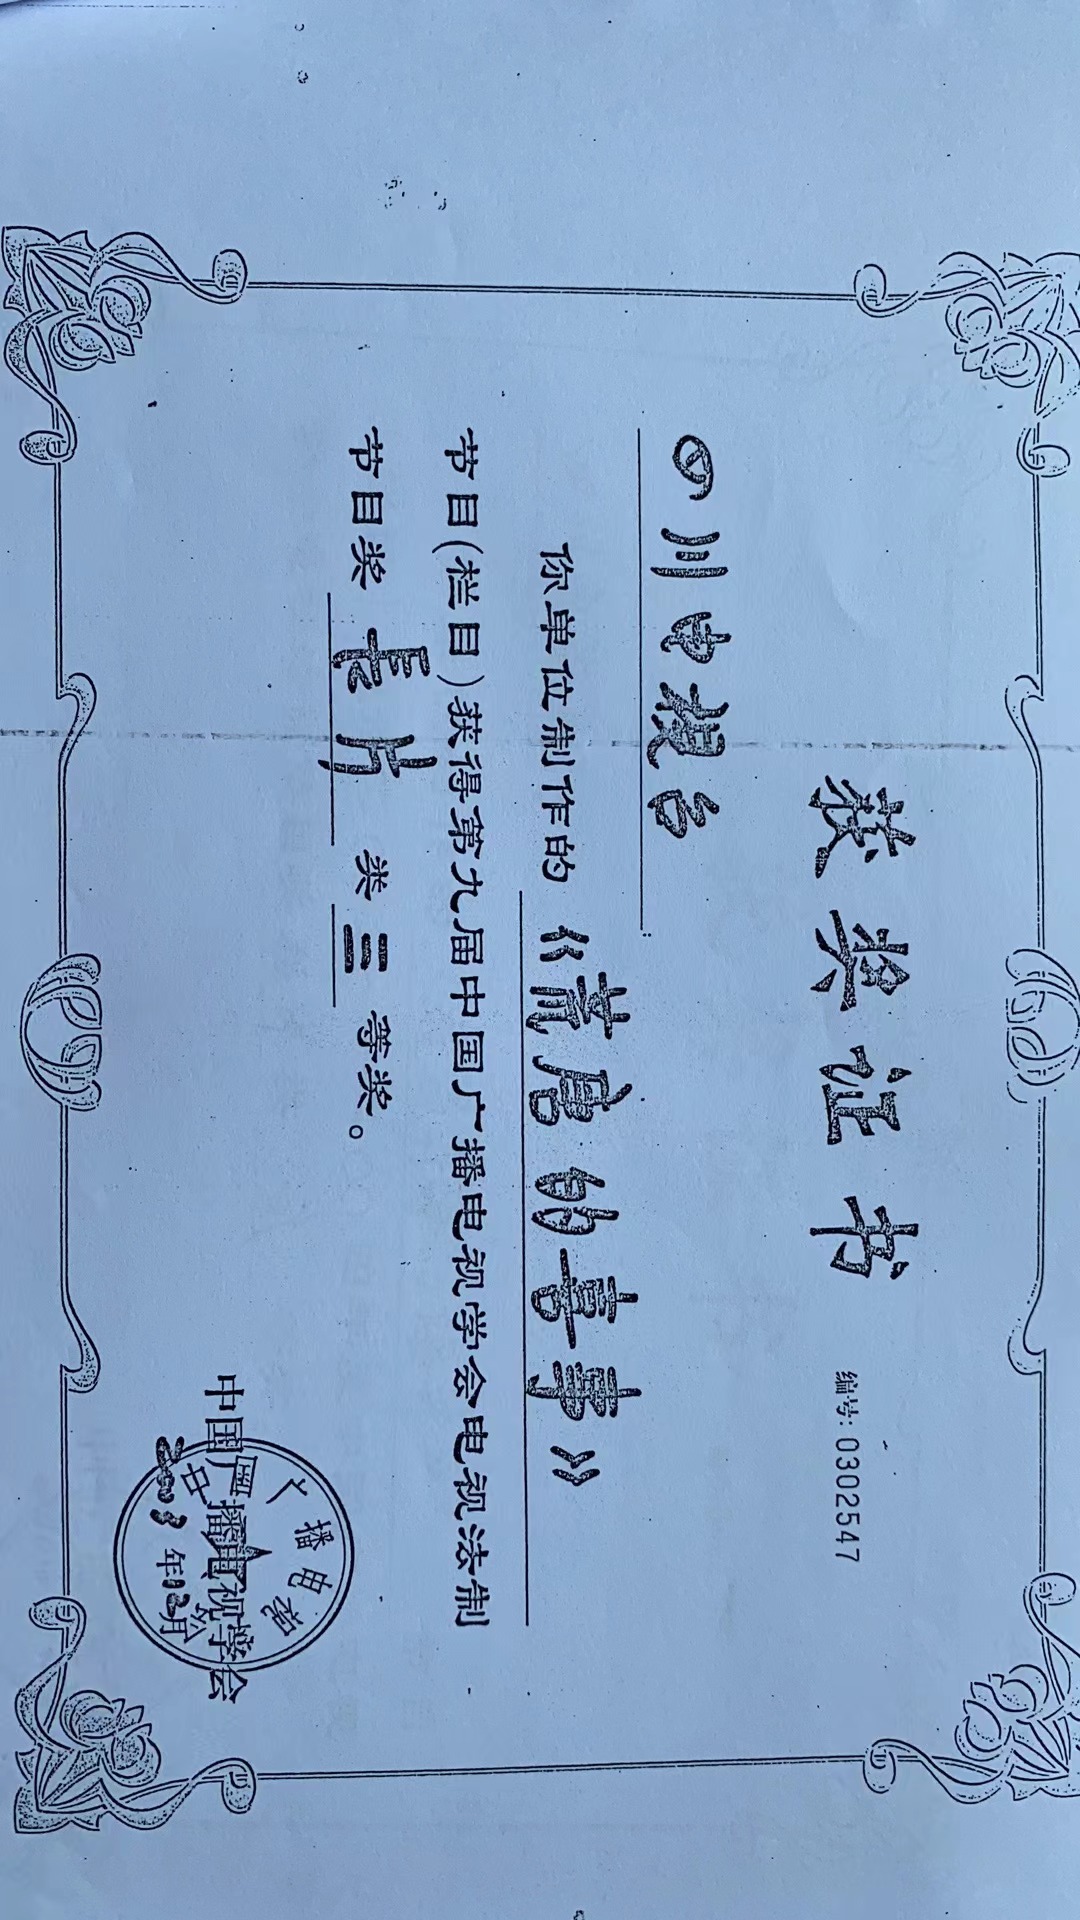 获奖证书
编号:0302547
四川电视台:
你单位制作的《荒唐的喜事》
节目(栏目)获得第九届中国广播电视学会电视法制
节目奖 長片 类 三 等奖。
中国广播电视学会
2003年12月